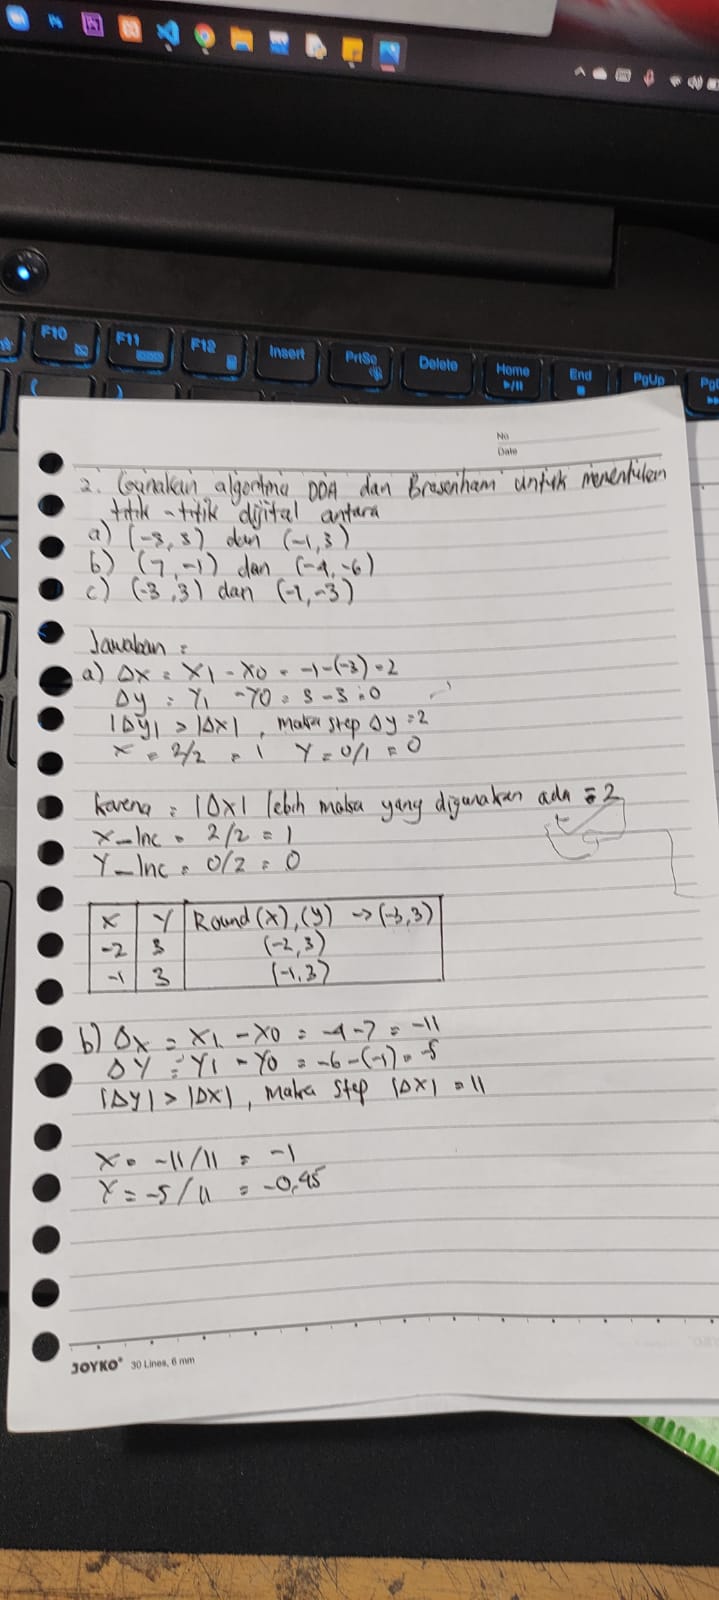 F10
F11
F12
Insert
PrtSc
Delete
Home
End
PgUp
No
Date
2. Gunakan algoritma DDA dan Bresenham untuk menentukan
titik - titik dijital antara
a) (-3, 3) dan (-1, 3)
b) (7, -1) dan (-4, -6)
c) (-3, 3) dan (-1, -3)
Jawaban =
a) Δx = X1 - X0 = -1-(-3) = 2
Δy = Y1 - Y0 = 3 - 3 = 0
|Δy| > |Δx| , maka step Δy = 2
X = 2/2 = 1 Y = 0/1 = 0
Karena = |Δx| lebih maka yang digunakan ada = 2
X-Inc = 2/2 = 1
Y-Inc = 0/2 = 0
X Y Round (x), (y) → (-3, 3)
-2 3 (-2, 3)
-1 3 (-1, 3)
b) Δx = X1 - X0 = -4 - 7 = -11
ΔY = Y1 - Y0 = -6 - (-1) = -5
|Δy| > |Δx| , maka step |Δx| = 11
X = -11/11 = -1
Y = -5/11 = -0,45
JOYKO® 30 Lines, 6 mm